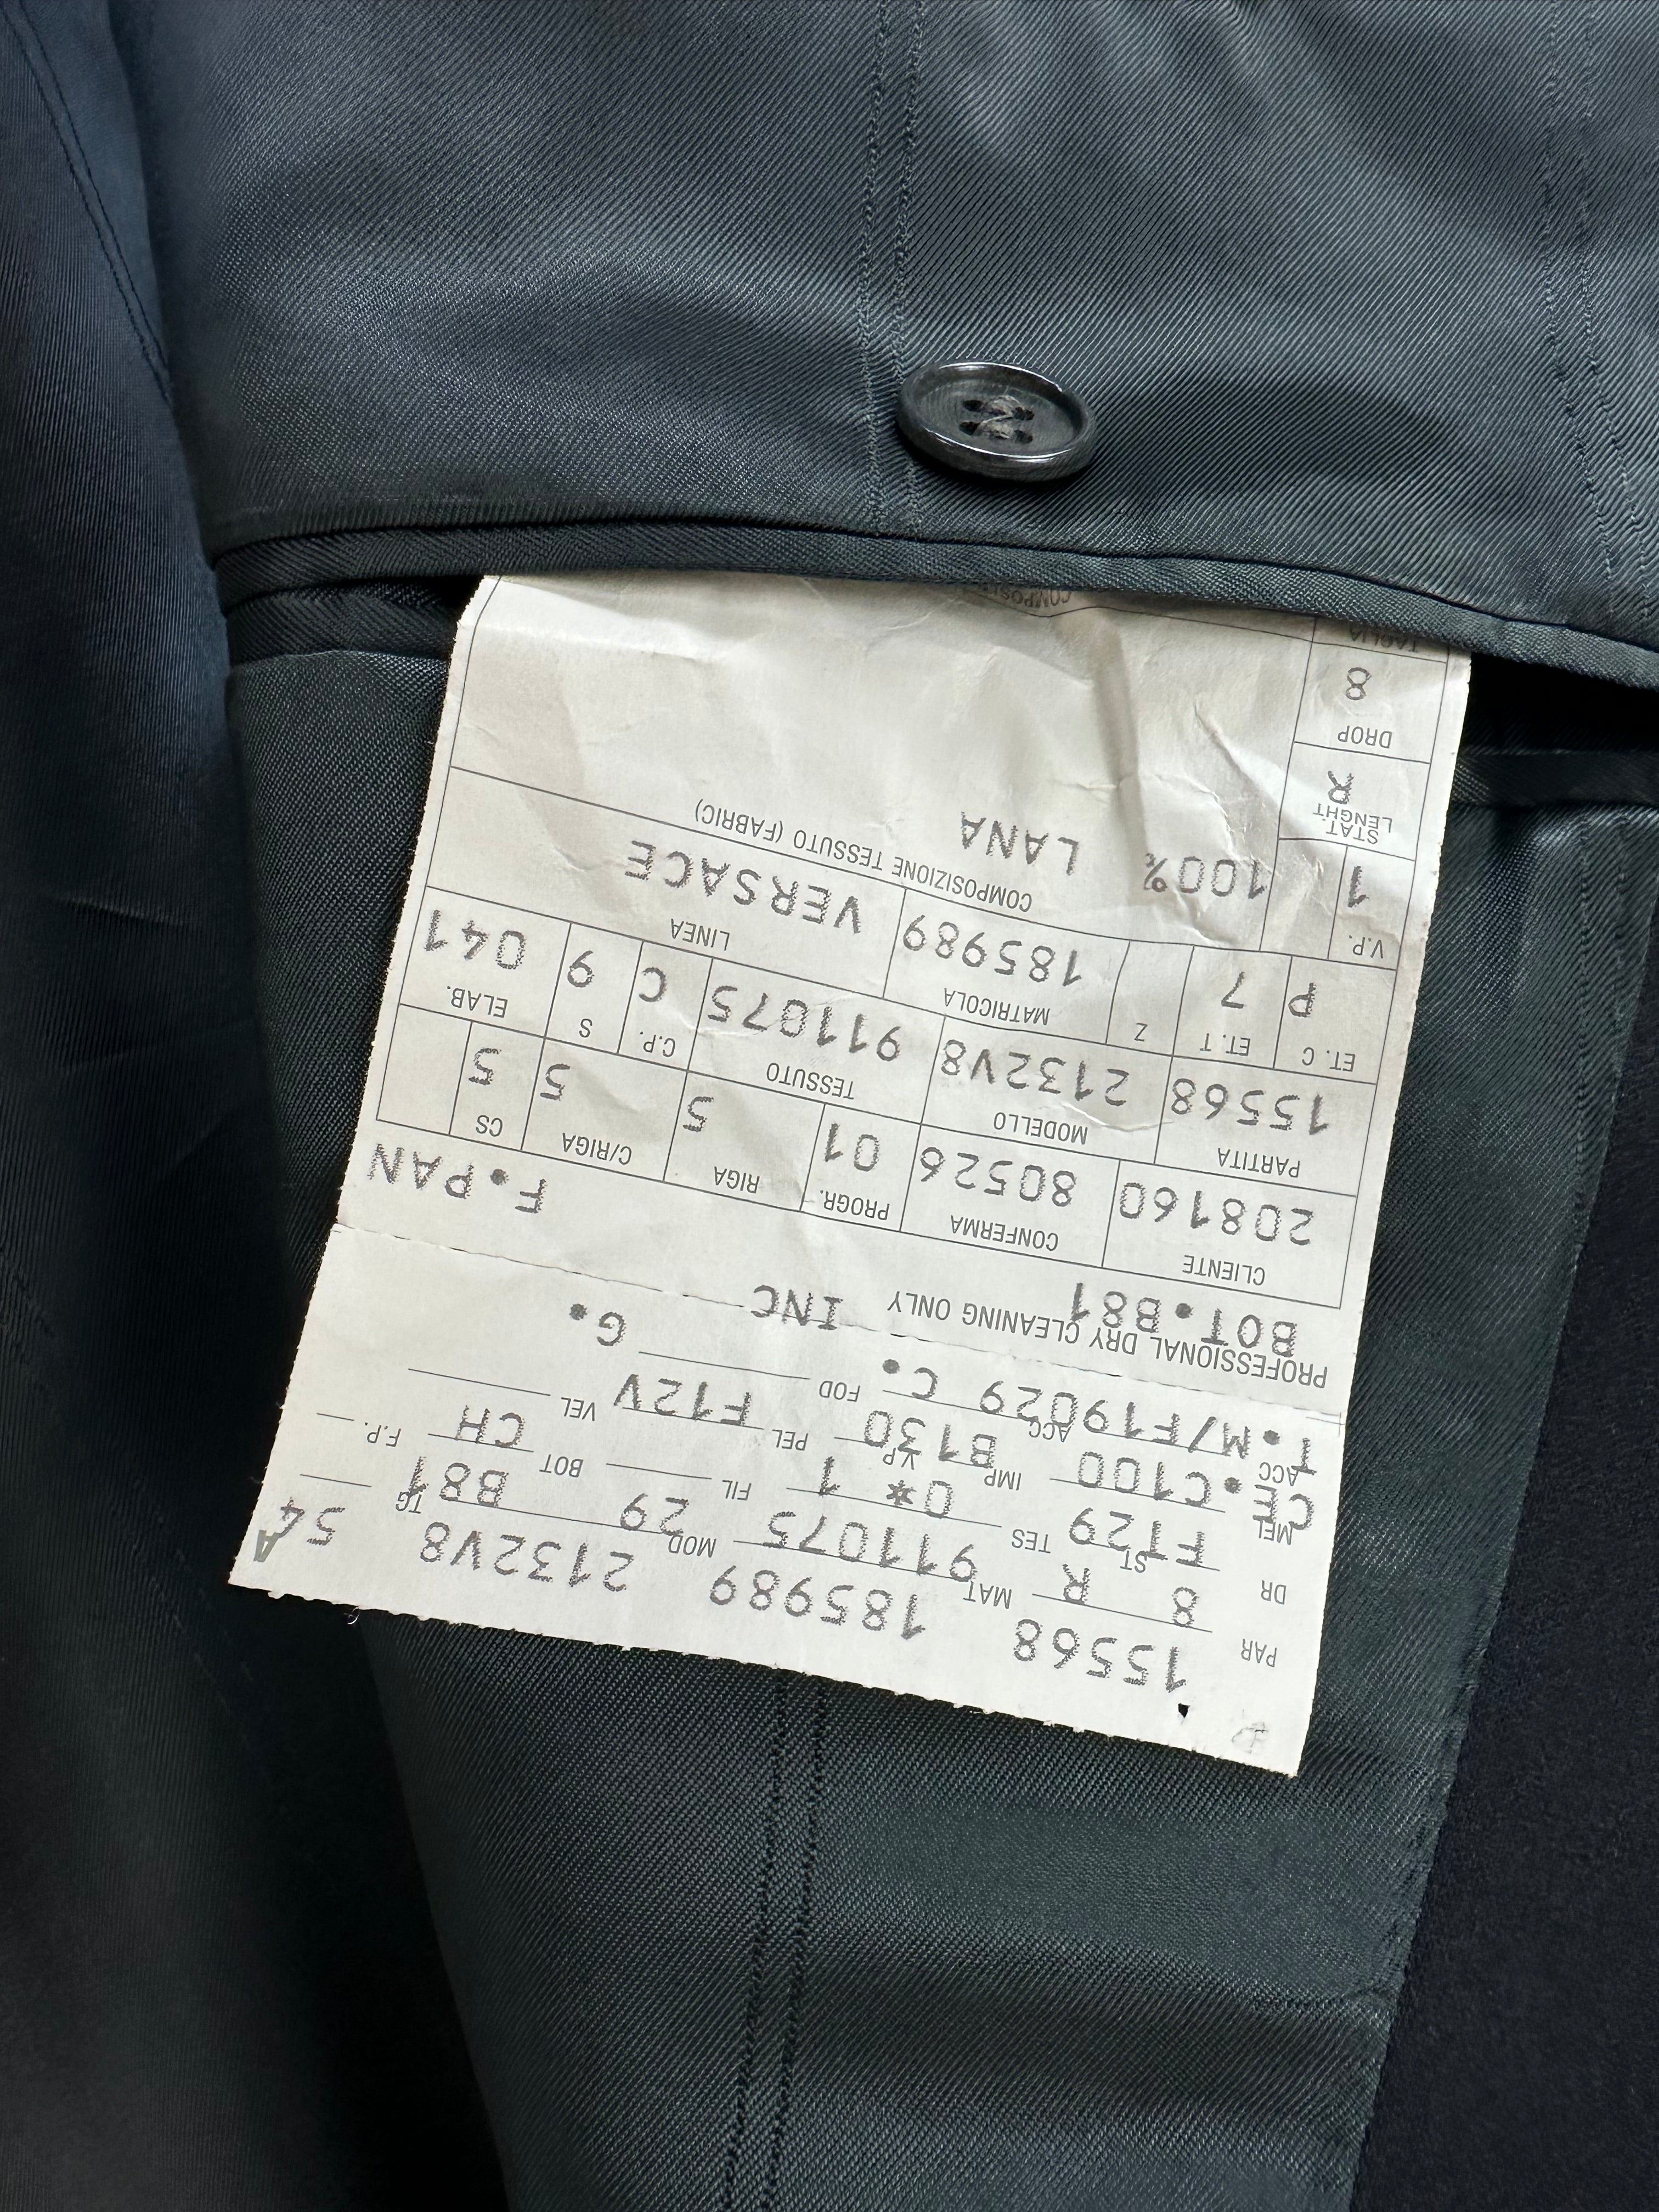 PAR 15568 185989 2132V8 54 A
DR 8 ST R MAT 911075 MOD 29 TG B81
MEL FT29 TES 0* 1 FIL BOT CH F.P.
CE.C100 IMP B130 PEL F12V VEL
ACC T.M/F19029 ACC C. V.P. FOD G.
PROFESSIONAL DRY CLEANING ONLY INC
BOT.B81 F.PAN
CLIENTE CONFERMA PROGR. RIGA C/RIGA CS
208160 80526 01 5 5 5
PARTITA MODELLO TESSUTO C.P. S ELAB.
15568 2132V8 911075 C 9 041
ET. C ET. T Z MATRICOLA LINEA
P 7 185989 VERSACE
V.P. COMPOSIZIONE TESSUTO (FABRIC)
1 100% LANA
STAT
LENGHT
R
DROP
8
TAGLIA